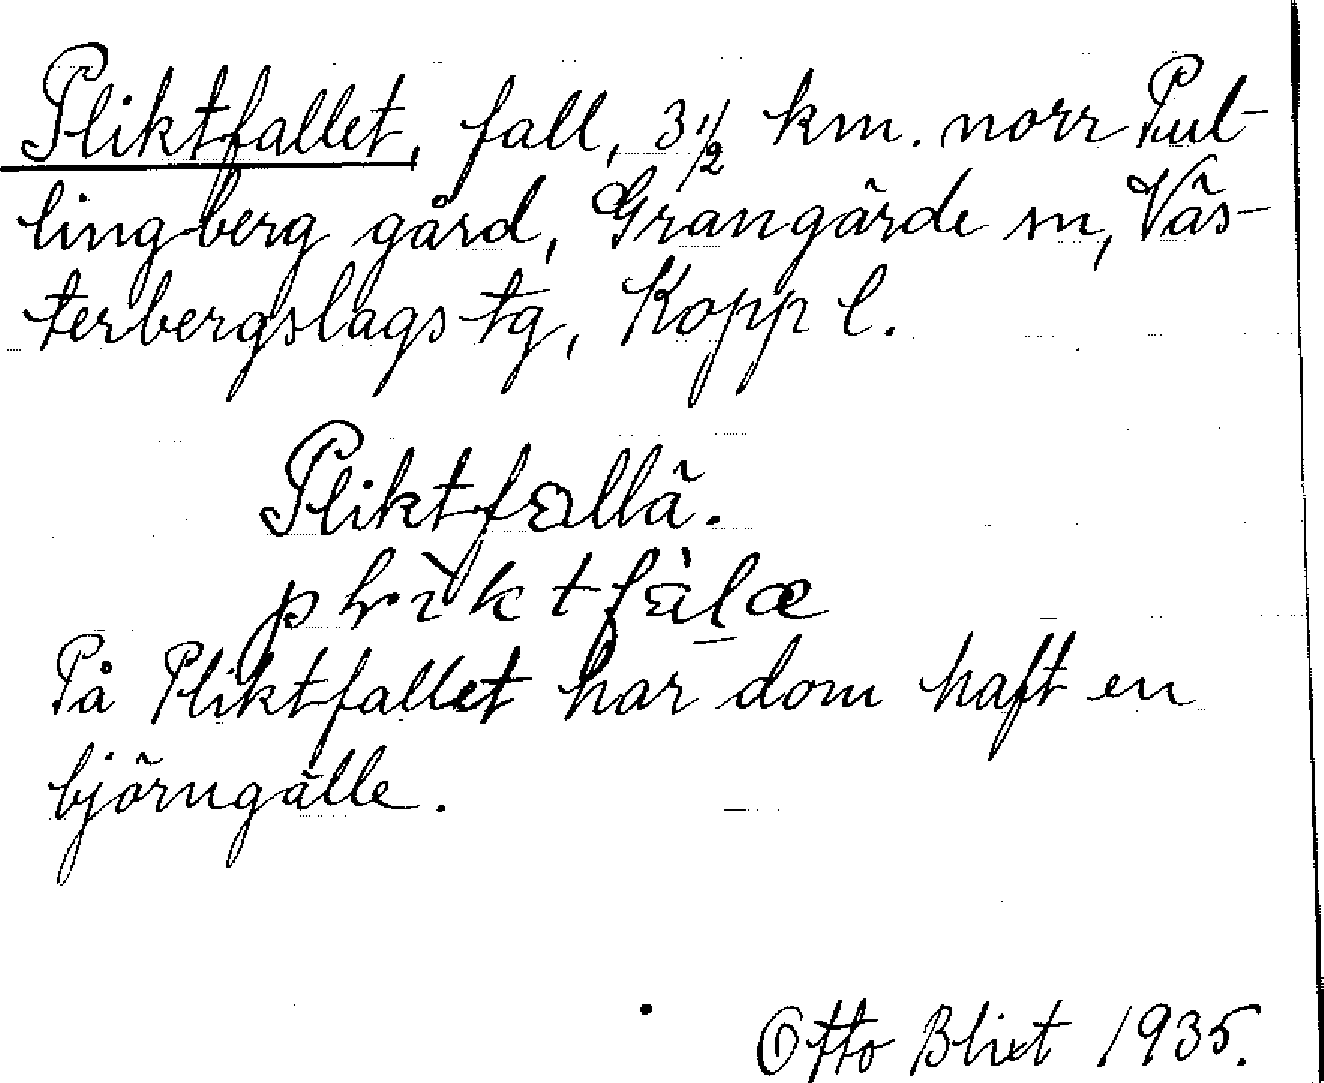 Pliktfallet, fall, 3 1/2 km. norr Put-
lingberg gård, Grangärde sn, Väs-
terbergslags tg, Kopp l.
Pliktfallä.
På Pliktfallet har dom haft en
björngälle.
Otto Blixt 1935.